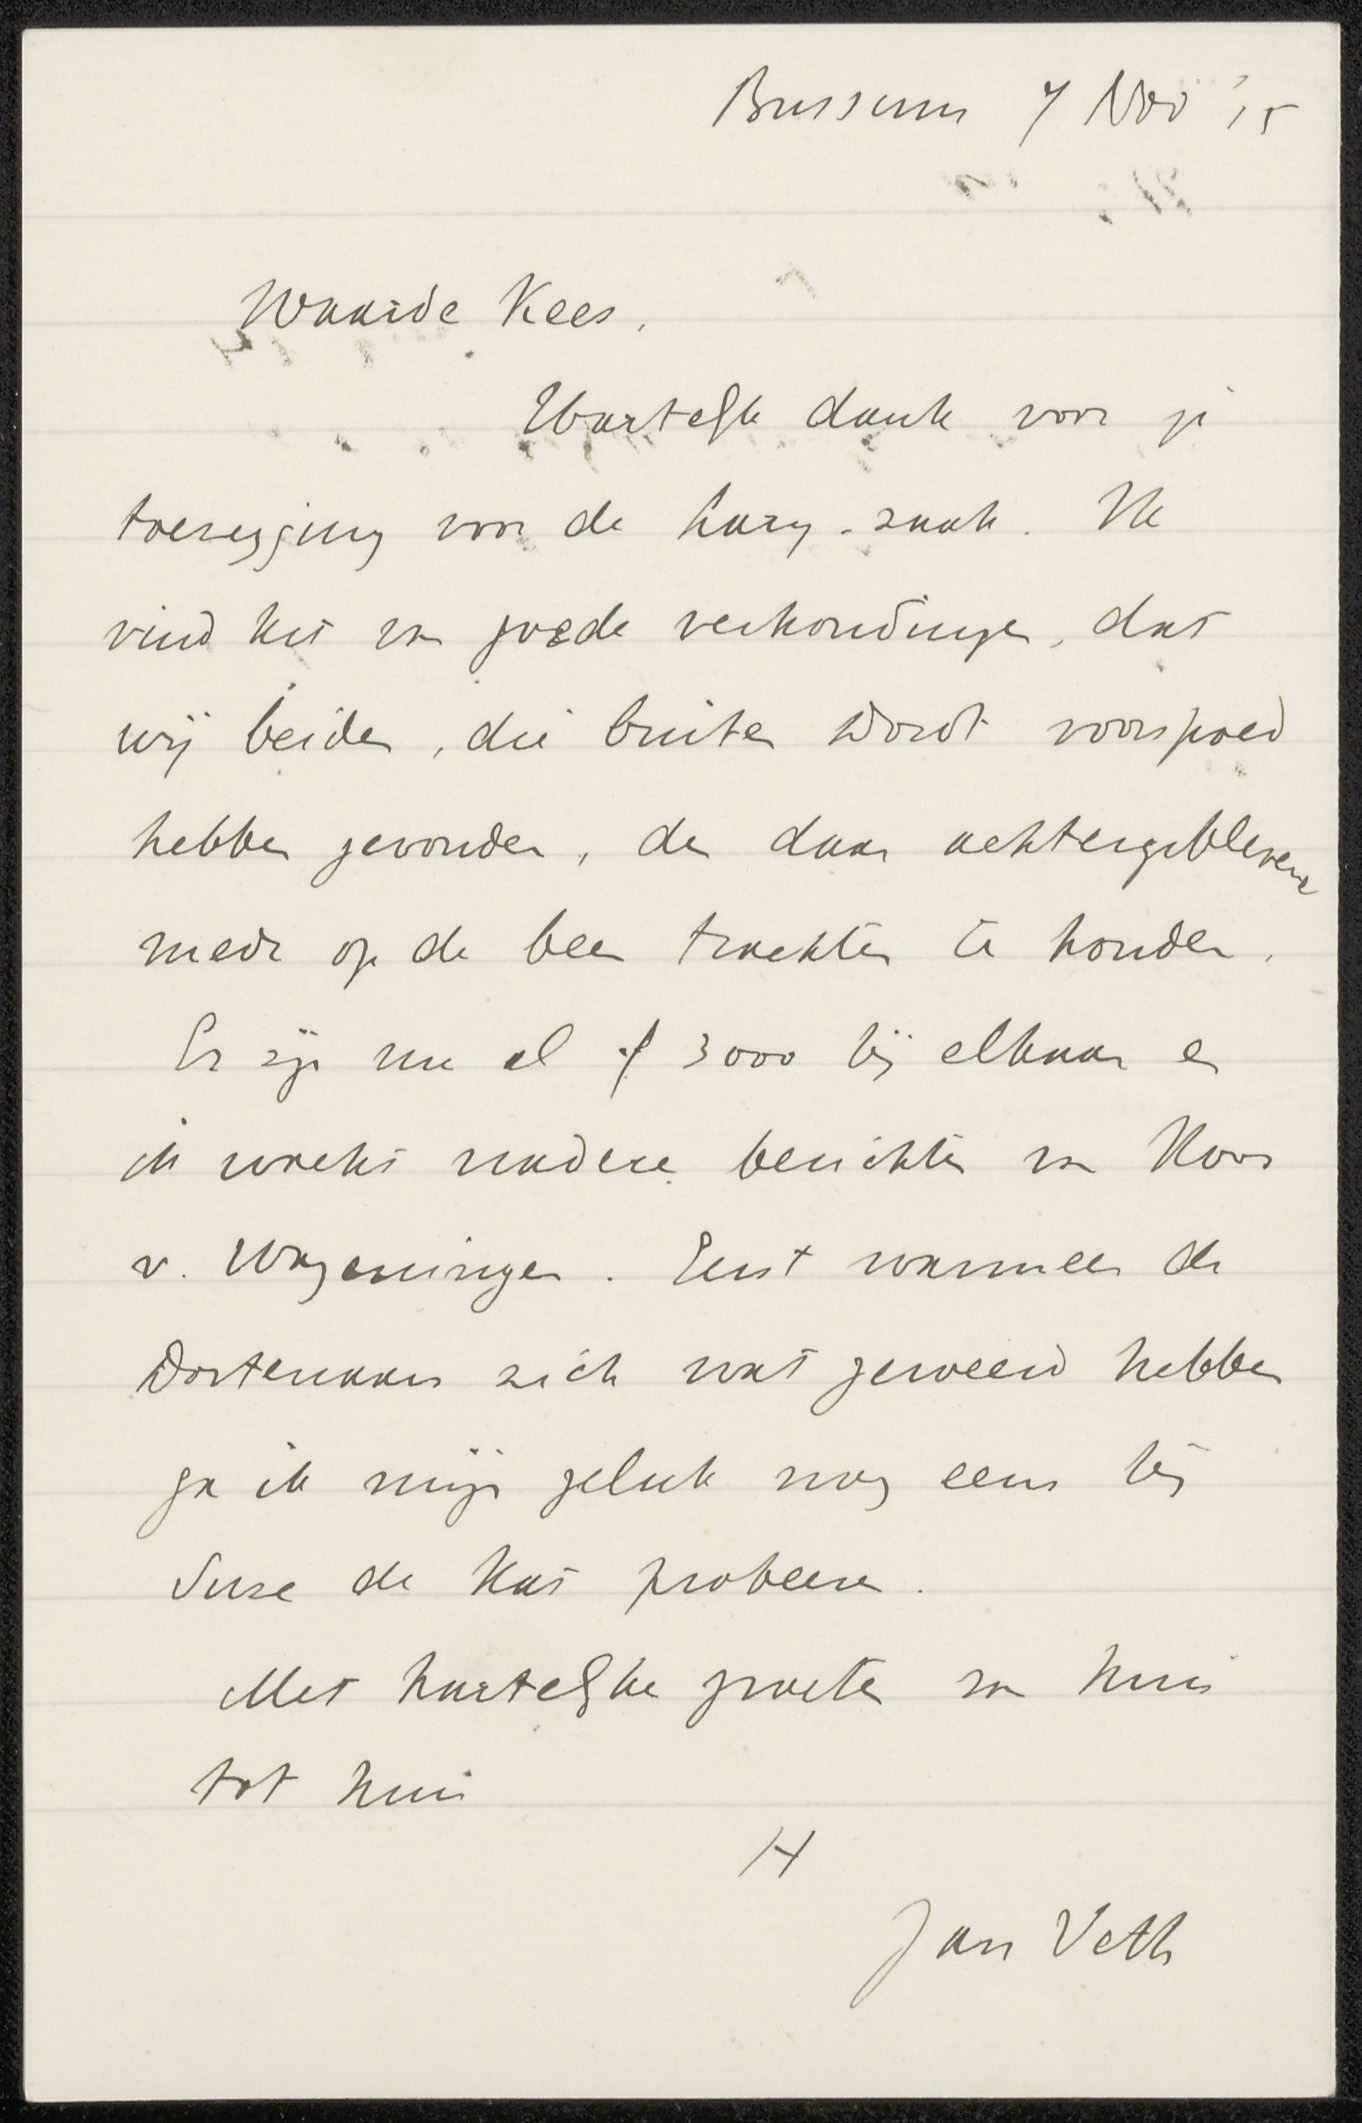 Bussum 7 Nov '15
Waarde Kees,
Hartelijk dank voor je
toezegging voor de Lary-zaak. Ik
vind het in goede verhoudingen, dat
wij beiden, die buiten Dordt voorspoed
hebben gevonden, de daar achtergeblevene
mede op de been trachten te houden.
Er zijn nu al f 3000 bij elkaar en
ik wacht nadere berichten van Koos
v. Wageningen. Eerst wanneer de
Dortenaars zich wat geweerd hebben
ga ik mijn geluk nog eens bij
Suze de Kat probeeren.
Met hartelijke groeten van huis
tot huis
Jan Veth